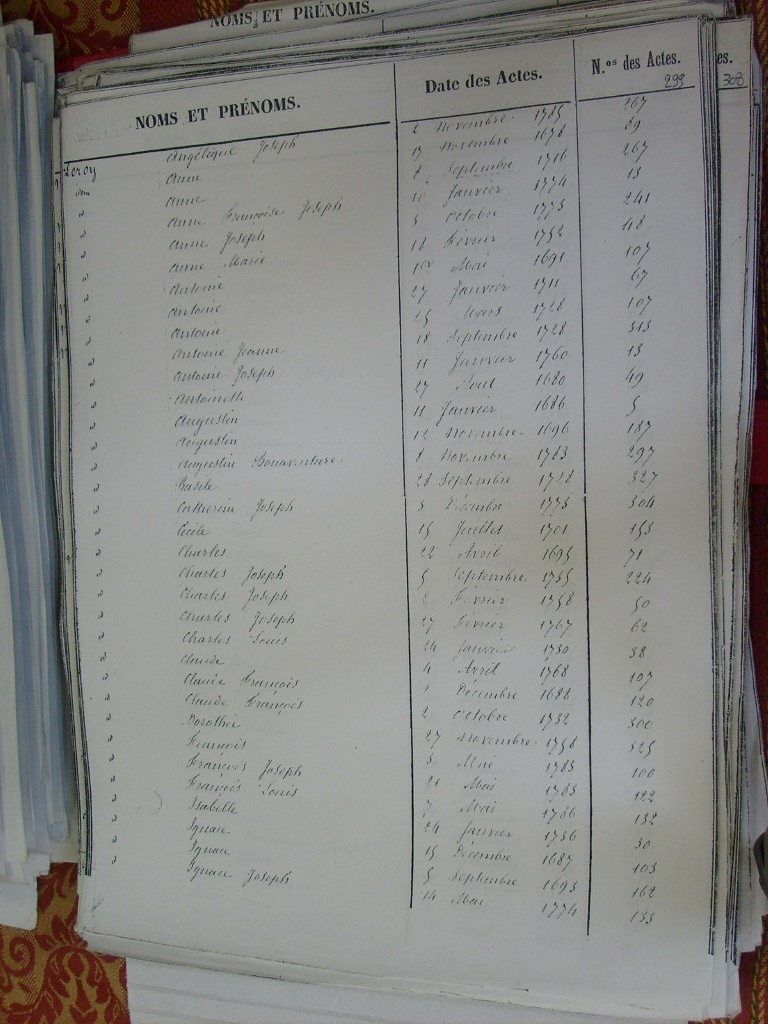 NOMS ET PRÉNOMS.
NOMS ET PRÉNOMS. Date des Actes. N.os des Actes. es.
299 302
Leroy Angélique Joseph 2 Novembre 1785 267
idem Anne 17 Novembre 1678 89
" Anne 7 Septembre 1716 267
" Anne Françoise Joseph 10 Janvier 1774 13
" Anne Joseph 5 Octobre 1773 241
" Anne Marie 18 Février 1752 48
" Antoine 1er Mai 1691 107
" Antoine 27 Janvier 1711 67
" Antoine 25 Mars 1728 107
" Antoine Jeanne 18 Septembre 1728 313
" Antoine Joseph 11 Janvier 1760 13
" Antoinette 27 Aout 1680 49
" Augustin 11 Janvier 1686 5
" Augustin 12 Novembre 1696 187
" Augustin Bonaventure 8 Novembre 1783 297
" Basile 28 Septembre 1728 327
" Catherine Joseph 3 Décembre 1773 304
" Cécile 15 Juillet 1701 153
" Charles 22 Avril 1695 71
" Charles Joseph 5 Septembre 1755 224
" Charles Joseph 2 Février 1758 50
" Charles Joseph 27 Février 1767 62
" Charles Louis 24 Janvier 1730 38
" Claude 4 Avril 1768 107
" Claude François 1 Décembre 1688 120
" Claude François 2 Octobre 1732 300
" Dorothée 27 Novembre 1758 325
" François 3 Mai 1783 100
" François Joseph 21 Mai 1763 122
" François Louis 7 Mai 1786 132
" Isabelle 24 Janvier 1736 30
" Ignace 15 Décembre 1687 103
" Ignace 5 Septembre 1693 162
" Ignace Joseph 14 Mai 1774 133